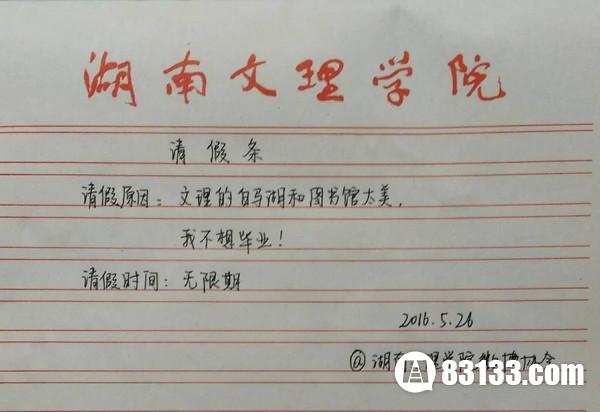 湖南文理学院
请假条
请假原因：文理的白马湖和图书馆太美，
我不想毕业！
请假时间：无限期
2016.5.26
@湖南文理学院微博协会
83133.com